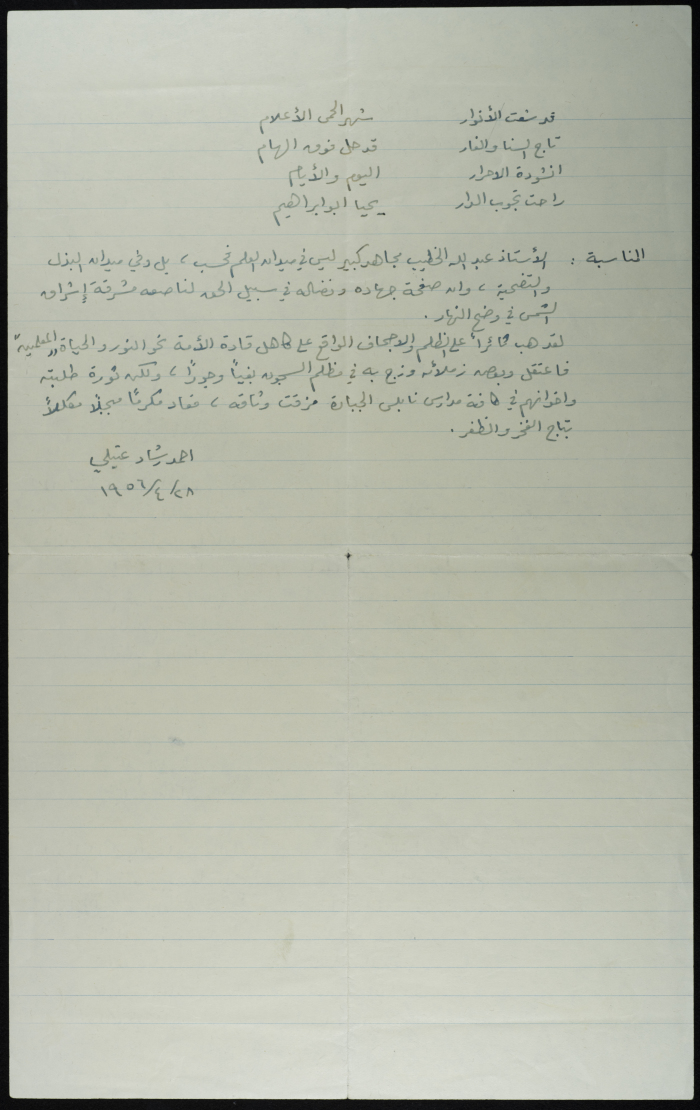 قد شعت الأنوار شهر الحمى الأعلام
تاج السنا والغار قد حل فوق الهام
انشودة الاحرار اليوم والأيام
راحت تجوب الدار يحيا ابو ابراهيم
المناسبة : الأستاذ عبد الله الخطيب مجاهد كبير ليس في ميدان العلم فحسب ، بل وفي ميدان البذل
والتضحية ، وان صفحة جهاده ونضاله في سبيل الحق لناصعة مشرقة إشراق
الشمس في وضح النهار .
لقد هب ثائراً على الظلم والاجحاف الواقع على كاهل قادة الأمة نحو النور والحياة "المعلمين"
فاعتقل وبعض زملائه وزج به في مظلم السجون بغياً وجوراً ، ولكن ثورة طلبته
واخوانهم في كافة مدارس نابلس الجبارة مزقت وثاقه ، فعاد مكرماً مبجلاً مكللاً
بتاج الفخر والظفر .
احمد رشاد عتيلي
١٩٥٦/٤/٢٨